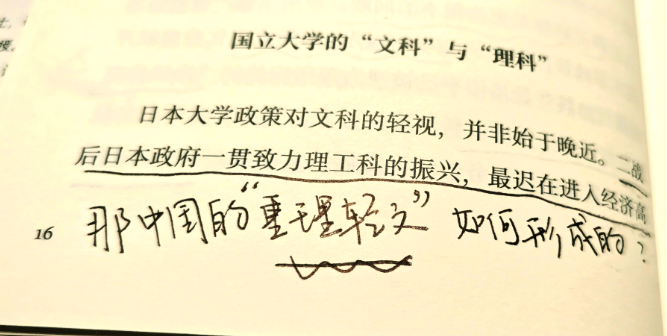 国立大学的“文科”与“理科”
日本大学政策对文科的轻视，并非始于晚近。二战
后日本政府一贯致力理工科的振兴，最迟在进入经济高
16
那中国的“重理轻文”如何形成的？